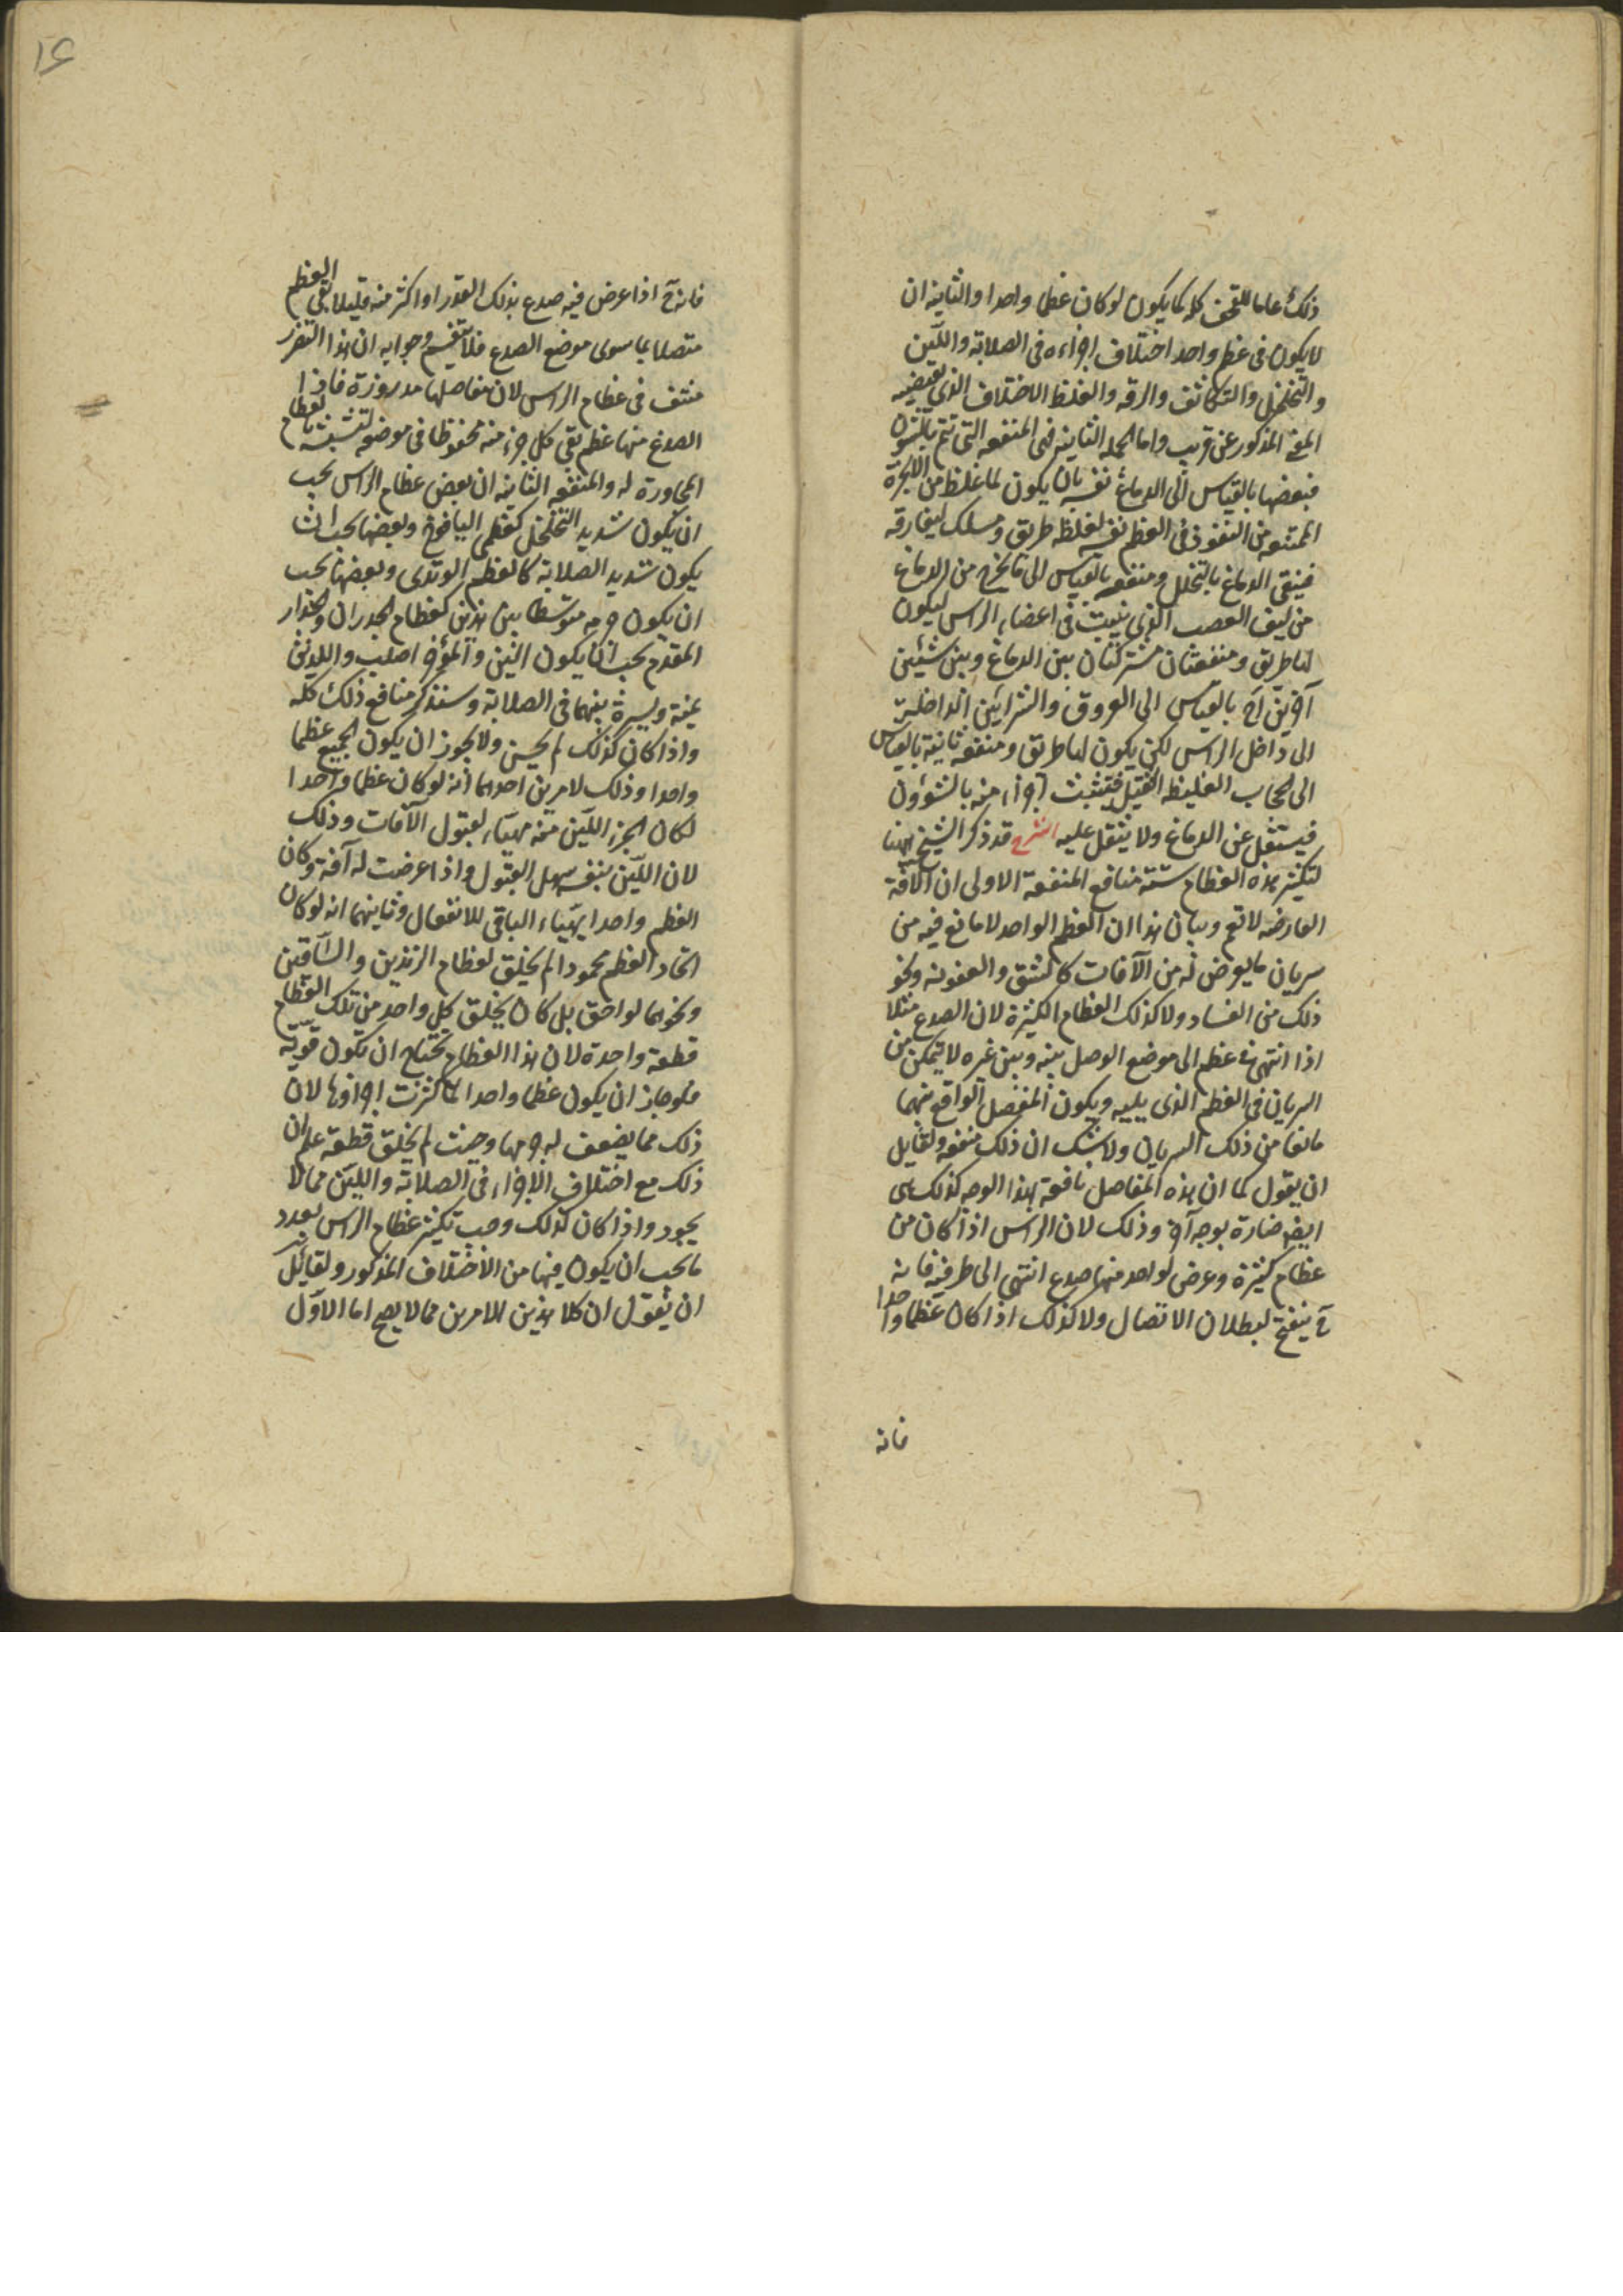 ذلك عاما للقحف كله كما يكون لو كان عظما واحدا والثانيه ان
لا يكون فى عظم واحد اختلاف اجزاءه فى الصلابة واللين
والتخلخل والتكاثف والرقه والغلظ الاختلاف الذى يقتضيه
المعنى المذكور عن قريب واما الجمله الثانيه فهى المنفعه التى تتم بالشئون
فبعضها بالقياس الى الدماغ نفسه بان يكون لما غلظ من الابخرة
الممتنعه من النفوذ فى العظم نفسه لغلظه طريق ومسلك ليفارقه
فينقى الدماغ بالتحلل ومنفعه بالقياس الى ما يخرج من الدماغ
من ليف العصب الذى ينبت فى اعضاء الراس ليكون
لها طريق ومنفعتان مشتركتان بين الدماغ وبين شيئين
آخرين آخ بالقياس الى العروق والشرائين الداخلة
الى داخل الراس لكن يكون لها طريق ومنفعه ثانية بالقياس
الى الحجاب الغليظ الثقيل فتتشبث اجزاء منه بالشوؤن
فيستقل عن الدماغ ولا يثقل عليه الشرح قد ذكر الشيخ ههنا
لتكثير هذه العظام ستة منافع المنفعة الاولى ان الآفة
العارضه لا تعم وبيان هذا ان العظم الواحد لا مانع فيه من
سريان ما يعرض له من الآفات كالشق والعفونه ونحو
ذلك من الفساد ولا كذلك العظام الكثيرة لان الصدع مثلا
اذا انتهى فى عظم الى موضع الوصل بينه وبين غيره لا يتمكن من
السريان فى العظم الذى يليه ويكون المفصل الواقع بينهما
مانعا من ذلك السريان ولا شك ان ذلك منفعه ولقايل
ان يقول كما ان هذه المفاصل نافعة بهذا الوجه كذلك هى
ايضا ضارة بوجه آخر وذلك لان الراس اذا كان من
عظام كثيرة وعرض لواحد منها صدع انتهى الى طرفيه فانه
ح ينفتح لبطلان الاتصال ولا كذلك اذا كان عظما واحدا
فانه
فانه ح اذا عرض فيه صدع بذلك القدر او اكثر منه قليلا بقى العظم
متصلا بما سوى موضع الصدع فلا ينقسم وجوابه ان هذا التضرر
منتف فى عظام الراس لان مفاصلها مدروزة فاذا
الصدع منها عظم بقى كل جزء منه محفوظا فى موضعه لتشبثه بالعظام
المجاورة له والمنفعه الثانيه ان بعض عظام الراس يجب
ان يكون شديد التخلخل كعظمى اليافوخ وبعضها يجب ان
يكون شديد الصلابة كالعظم الوتدى وبعضها يجب
ان يكون جرمه متوسطا بين هذين كعظام الجدران والجدار
المقدم يجب ان يكون الين والمؤخر اصلب واللذين
يمنة ويسرة بينهما فى الصلابة وسنذكر منافع ذلك كله
واذا كان كذلك لم يحسن ولا يجوز ان يكون الجميع عظما
واحدا وذلك لامرين احدهما انه لو كان عظما واحدا
لكان الجزء اللين منه مهيآء لقبول الآفات وذلك
لان اللين بنفسه سهل القبول واذا عرضت له آفة وكان
العظم واحدا يهيآء الباقى للانفعال وثانيهما انه لو كان
اتحاد العظم محمودا لم يخلق لعظام الزندين والساقين
ونحوهما لواحق بل كان يخلق كل واحد من تلك العظام
قطعة واحدة لان هذا العظام تحتاج ان تكون قوية
فلو جاز ان يكون عظما واحدا لما كثرت اجزاؤها لان
ذلك مما يضعف له جرمها وحيث لم يخلق قطعة علم ان
ذلك مع اختلاف الاجزاء فى الصلابة واللين مما لا
يجود واذا كان كذلك وجب تكثير عظام الراس بعدد
ما يجب ان يكون فيها من الاختلاف المذكور ولقائل
ان يقول ان كلا هذين الامرين مما لا يصح اما الاول